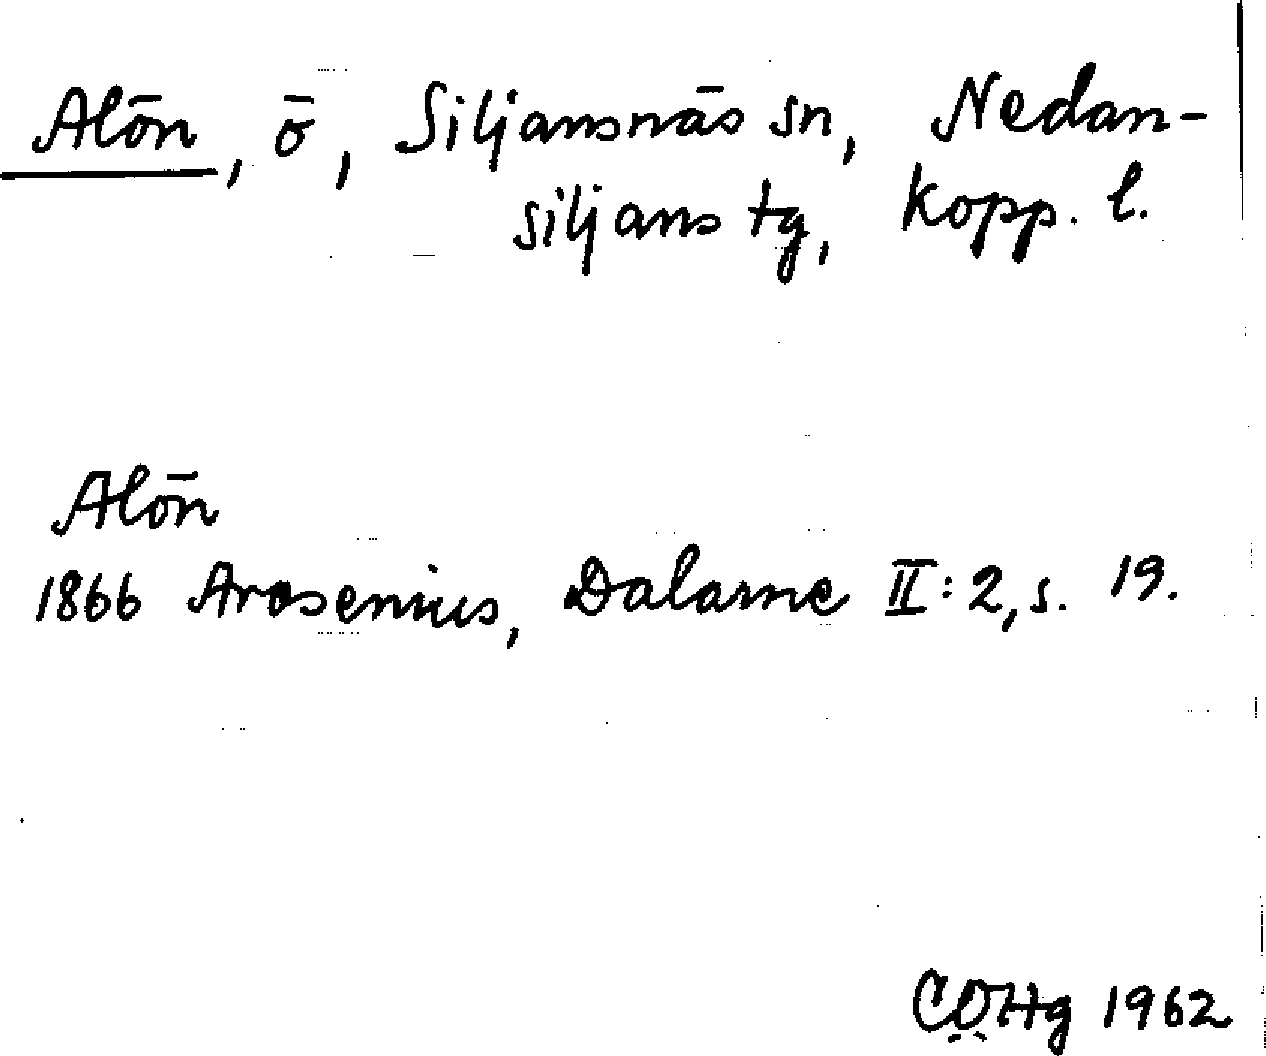 Alön, ö, Siljansnäs sn, Nedan-
siljans tg, Kopp. l.
Alön
1866 Arosenius, Dalarne II:2, s. 19.
CÖHg 1962